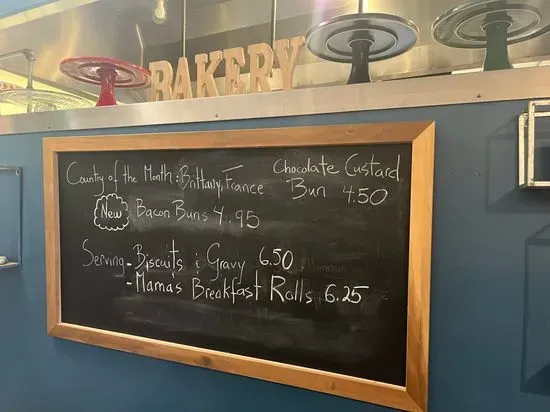 BAKERY
Country of the Month: Brittany, France
New Bacon Buns 4.95
Chocolate Custard
Bun 4.50
Serving - Biscuits & Gravy 6.50
- Mama's Breakfast Rolls 6.25